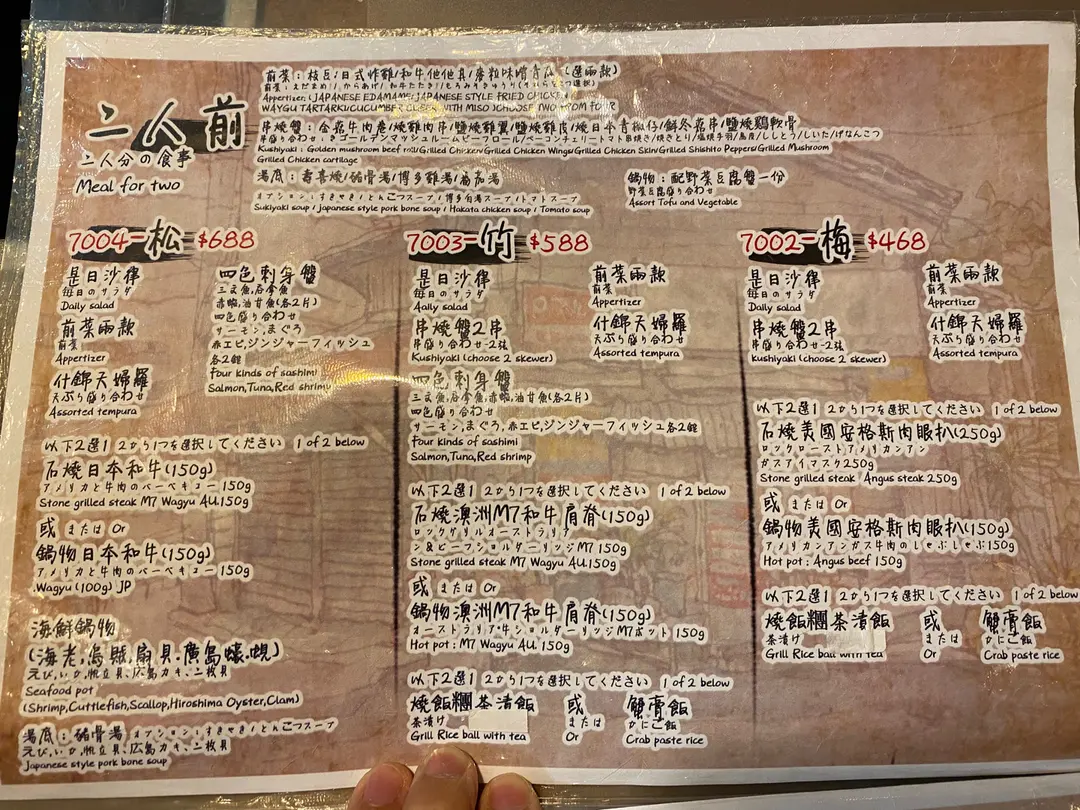 二人前
二人分の食事
Meal for two
前菜：枝豆/日式炸雞/和牛他他
WAYGU TARTAR
WITH MISO
串燒盤：金菇牛肉卷/燒雞肉串/鹽燒雞翼/鹽燒雞皮/燒日本青椒仔/鮮冬菇串/鹽燒鷄軟骨
Kushiyaki : Golden mushroom beef roll/Grilled Chicken/Grilled Chicken Wings/Grilled Chicken Skin/Grilled Shishito Peppers/Grilled Mushroom
Grilled Chicken cartilage
湯底：壽喜燒/豬骨湯/博多雞湯/蕃茄湯
オプション：すきやき/とんこつスープ/博多白湯スープ/トマトスープ
Sukiyaki soup / Japanese style pork bone soup / Hakata chicken soup / Tomato soup
鍋物：配野菜豆腐盤一份
野菜豆腐盛り合わせ
Assort Tofu and Vegetable
7004-松 $688
是日沙律
毎日のサラダ
Daily salad
前菜兩款
前菜
Appertizer
什錦天婦羅
天ぷら盛り合わせ
Assorted tempura
四色刺身盤
三文魚,吞拿魚
赤蝦,油甘魚(各2片)
四色盛り合わせ
サーモン,まぐろ
赤エビ,ジンジャーフィッシュ
各2館
Four kinds of sashimi
Salmon,Tuna,Red shrimp
以下2選1 2から1つを選択してください 1 of 2 below
石燒日本和牛(150g)
アメリカと牛肉のバーベキュー 150g
Stone grilled steak M7 Wagyu AU.150g
或 または Or
鍋物日本和牛(150g)
アメリカと牛肉のバーベキュー 150g
Wagyu (100g) JP
海鮮鍋物
(海老,烏賊,扇貝,廣島蠔,蜆)
えび,いか,帆立貝、広島カキ、二枚貝
Seafood pot
(Shrimp,Cuttlefish,Scallop,Hiroshima Oyster,Clam)
湯底：豬骨湯 オプション：すきやき/とんこつスープ
えび,いか,帆立貝、広島カキ、二枚貝
Japanese style pork bone soup
7003-竹 $588
是日沙律
毎日のサラダ
Aaily salad
前菜兩款
前菜
Appertizer
串燒盤2串
串盛り合わせ-2弦
Kushiyaki (choose 2 skewer)
什錦天婦羅
天ぷら盛り合わせ
Assorted tempura
四色刺身盤
三文魚,吞拿魚,赤蝦,油甘魚(各2片)
四色盛り合わせ
サーモン,まぐろ,赤エビ,ジンジャーフィッシュ各2館
Four kinds of sashimi
Salmon,Tuna,Red shrimp
以下2選1 2から1つを選択してください 1 of 2 below
石燒澳洲M7和牛肩脊(150g)
ロックグリルオーストラリア
ン&ビーフショルダーリッジM7 150g
Stone grilled steak M7 Wagyu AU.150g
或 または Or
鍋物澳洲M7和牛肩脊(150g)
オーストラリア牛ショルダーリッジM7ポット 150g
Hot pot : M7 Wagyu AU. 150g
以下2選1 2から1つを選択してください 1 of 2 below
燒飯糰茶漬飯 或 蟹膏飯
茶漬け または かにご飯
Grill Rice ball with tea Or Crab paste rice
7002-梅 $468
是日沙律
毎日のサラダ
Daily salad
前菜兩款
前菜
Appertizer
串燒盤2串
串盛り合わせ-2弦
Kushiyaki (choose 2 skewer)
什錦天婦羅
天ぷら盛り合わせ
Assorted tempura
以下2選1 2から1つを選択してください 1 of 2 below
石燒美國安格斯肉眼扒(250g)
ロックローストアメリカンアン
ガスアイマスク250g
Stone grilled Angus steak 250g
或 または Or
鍋物美國安格斯肉眼扒(150g)
アメリカンアンガス牛肉のしゃぶしゃぶ150g
Hot pot : Angus beef 150g
以下2選1 2から1つを選択してください 1 of 2 below
燒飯糰茶漬飯 或 蟹膏飯
茶漬け または かにご飯
Grill Rice ball with tea Or Crab paste rice